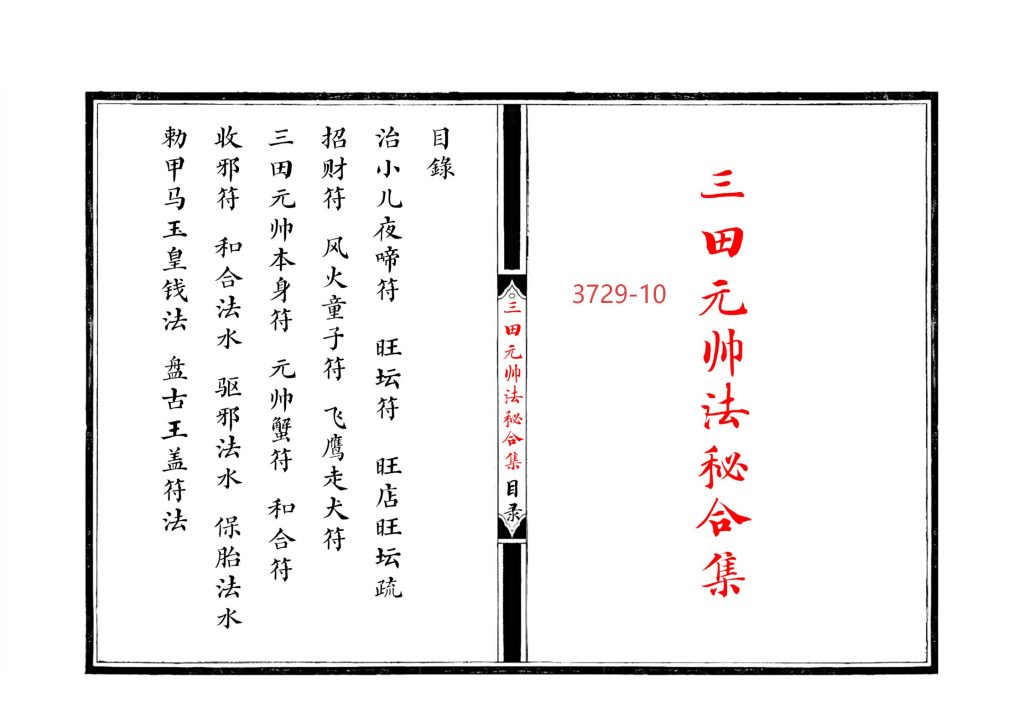 三田元帅法秘合集
3729-10
三田元帅法秘合集 目录
目錄
治小儿夜啼符 旺坛符 旺店旺坛疏
招财符 风火童子符 飞鹰走犬符
三田元帅本身符 元帅蟹符 和合符
收邪符 和合法水 驱邪法水 保胎法水
勅甲马玉皇钱法 盘古王盖符法